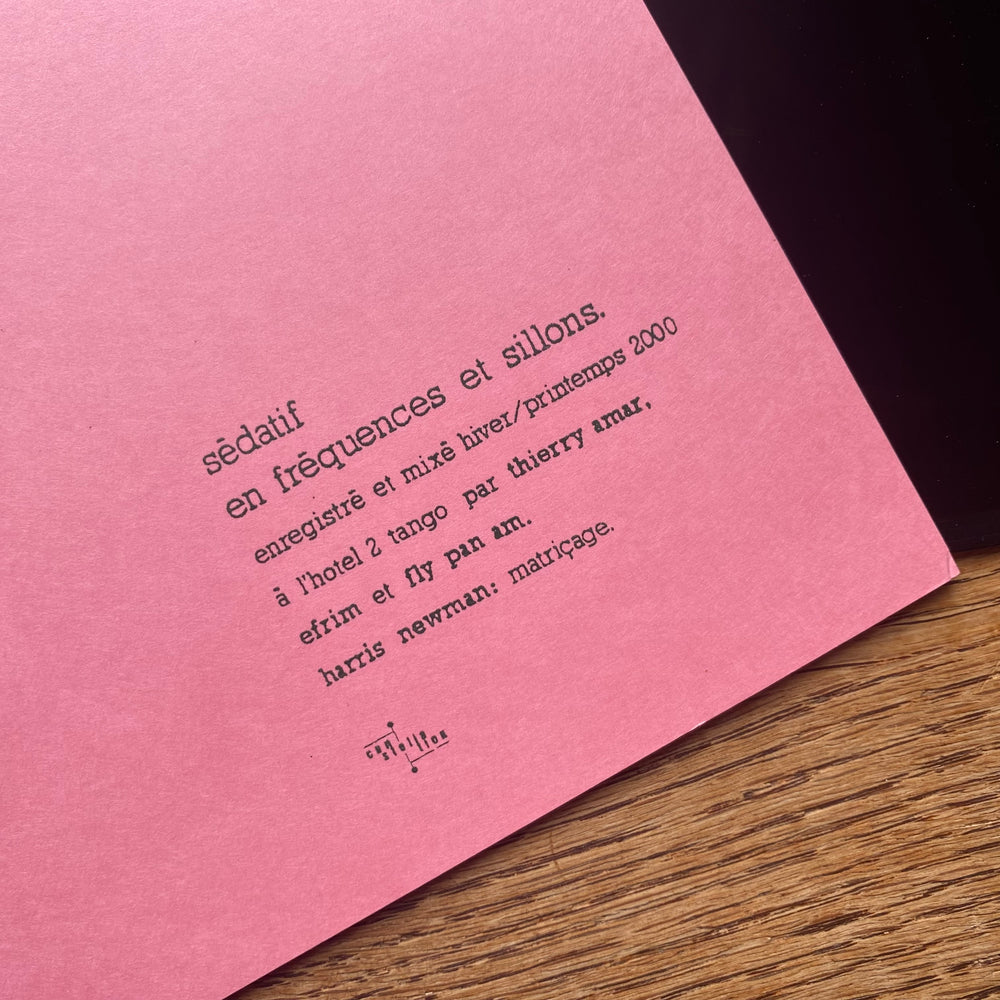 sédatif
en fréquences et sillons.
enregistré et mixé hiver/printemps 2000
à l'hotel 2 tango par thierry amar,
efrim et fly pan am.
harris newman: matriçage.
constellation